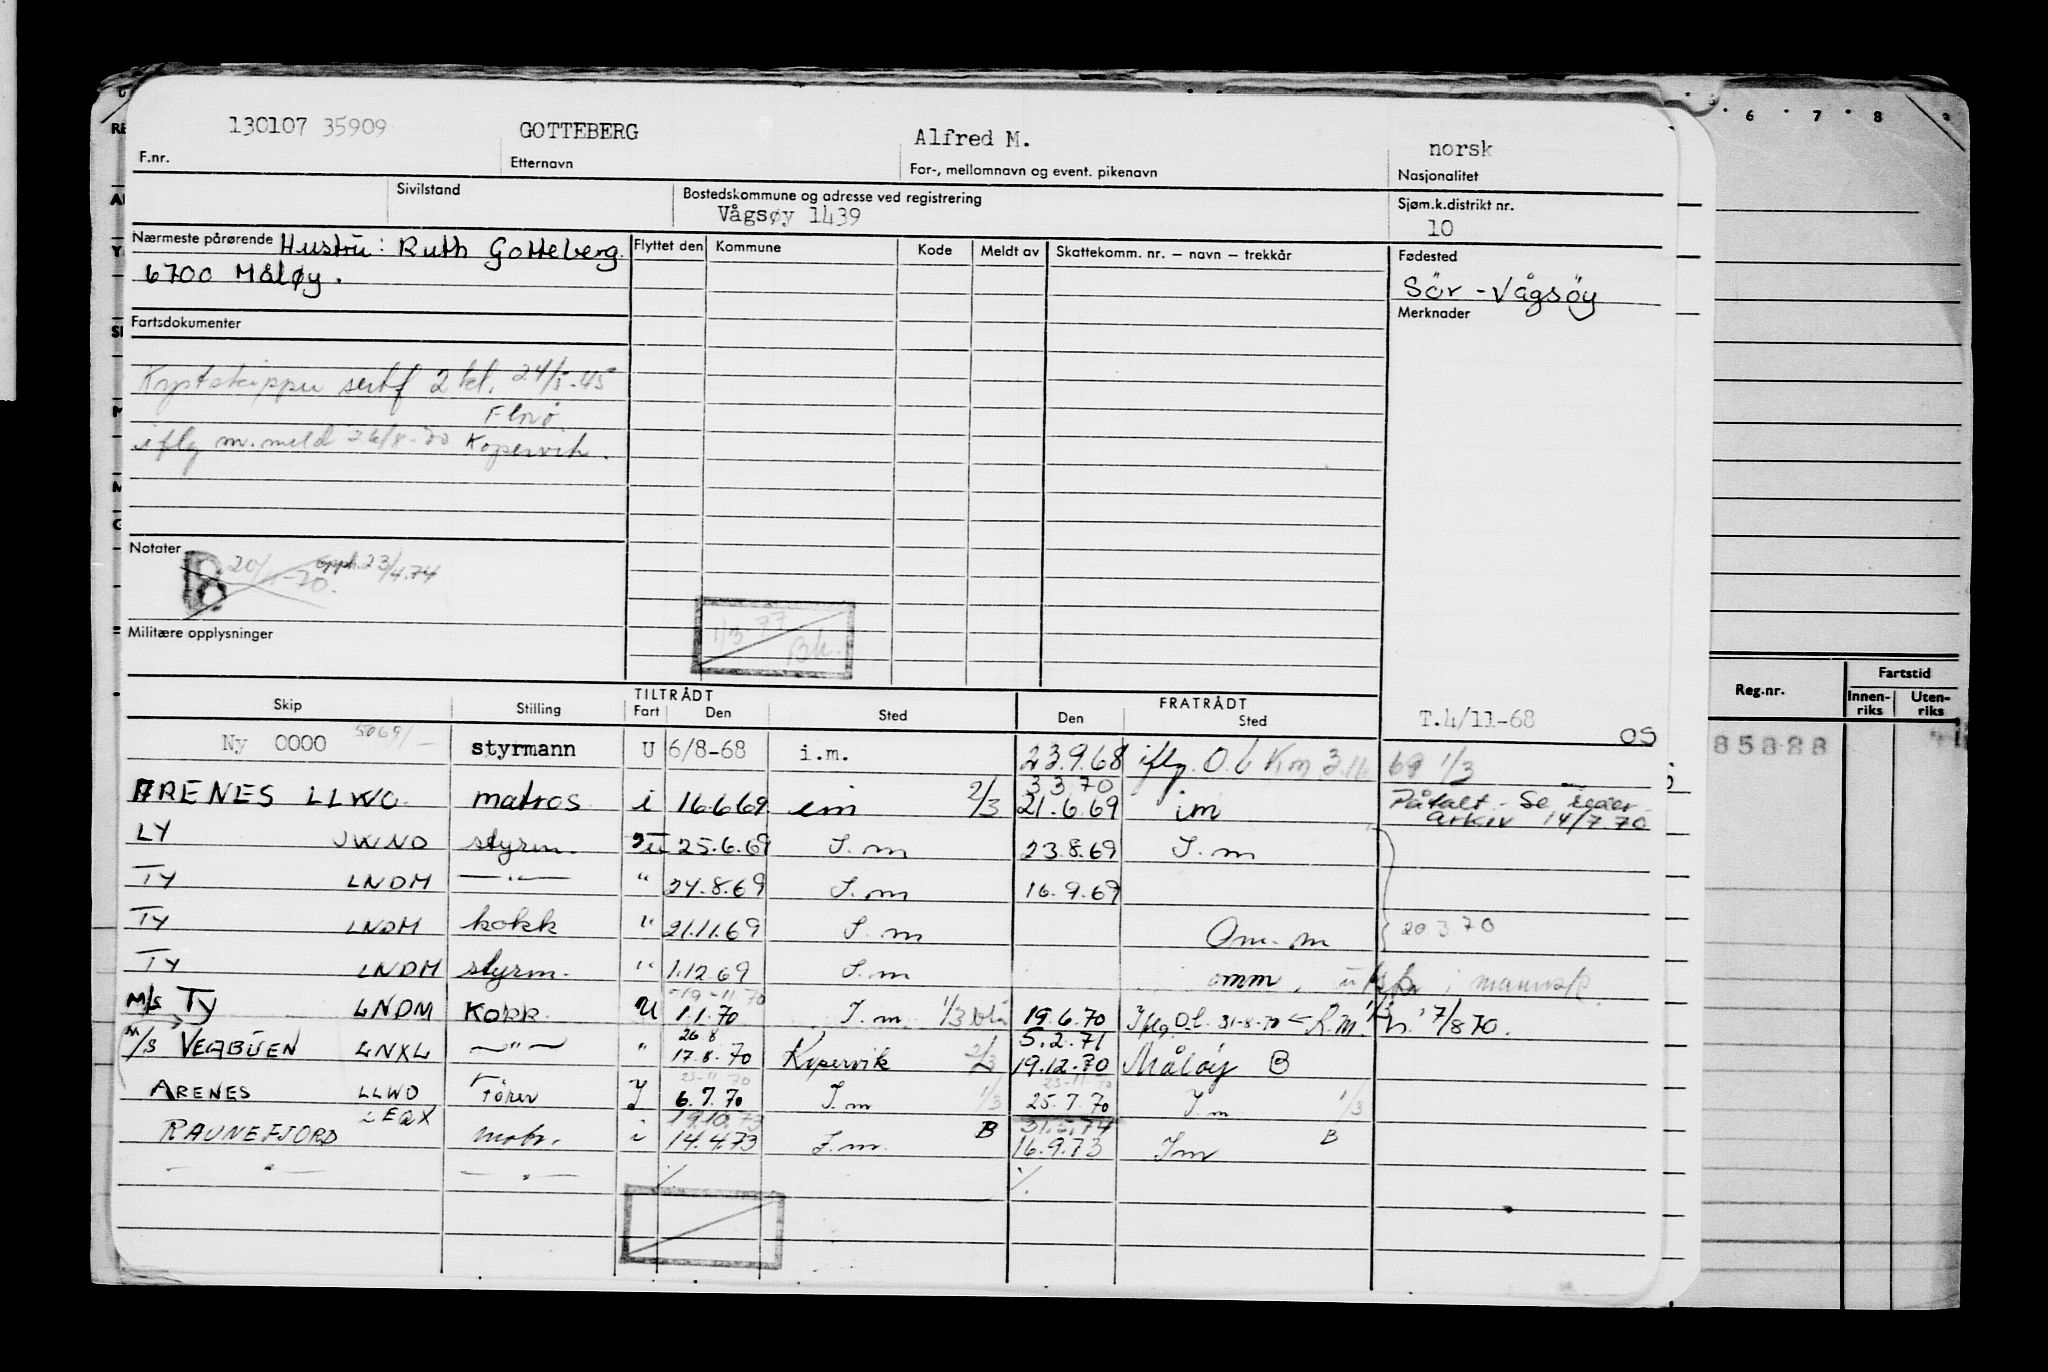 130107 35909 GOTTEBERG Alfred M. norsk
F.nr. Etternavn For-, mellomnavn og event. pikenavn Nasjonalitet
Sivilstand Bostedskommune og adresse ved registrering Sjøm.k.distrikt nr.
Vågsøy 1439 10
Nærmeste pårørende Hustru: Ruth Gotteberg. Flyttet den Kommune Kode Meldt av Skattekomm. nr. — navn — trekkår Fødested
6700 Måløy. Sör - Vågsöy
Fartsdokumenter Merknader
Kystskipper sertf 2 kl. 24/5-45
Florö
iflg m.meld 26/8-70 Kopervik.
Notater
B 20/ -70. opph. 23/4.74
1/3 77
Bh.
Militære opplysninger
TILTRÅDT FRATRÅDT
Skip Stilling Fart Den Sted Den Sted
T.4/11-68
OS
Ny 0000 5069/ styrmann U 6/8-68 i.m. 23.9.68 iflg. O.b Km 69 1/3
3 3 70
ARENES LLWO matros i 16.6.69 im 2/3 21.6.69 im Påtalt - Se
arkiv 14/7.70
LY JWNO styrm. U 25.6.69 I.m 23.8.69 I.m
TY LNDM —"— " 24.8.69 I.m 16.9.69
TY LNDM kokk " 21.11.69 I.m Om. m 20 3 70
TY LNDM styrm. " 1.12.69 I.m omm. i mannsk.
-19 -11 70
M/S TY LNDM Kokk U 1.1.70 I.m. 1/3 19.6.70 Iflg O.l. 31-8-70 R.M. 1/3 7/8 70.
26 8 5.2.71
M/S VEABUEN LNXL —"— " 17.8.70 Kopervik 2/3 19.12.70 Måløy B
23-11 70 23-11 70
ARENES LLWO Förer I 6.7.70 I.m 1/3 25.7.70 I.m 1/3
LEQX 19.10.73 31.5.74
RAUNEFJORD matr. i 14.4.73 I.m. B 16.9.73 Im B
—"— —"— % %
6 7 8
Reg.nr. Fartstid
Innen- Uten-
riks riks
85888